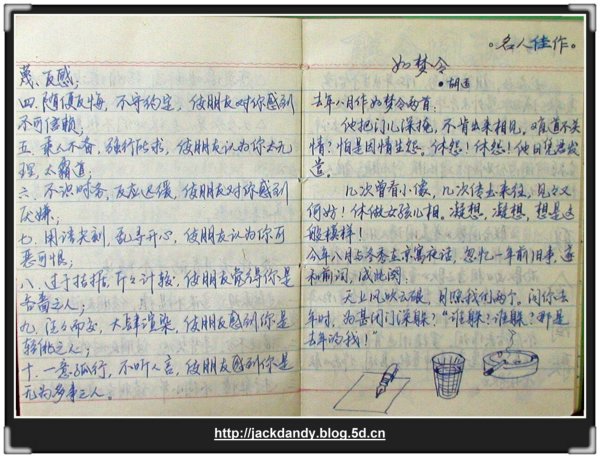 蔑、反感;
四、随便反悔,不守约定,使朋友对你感到
不可信赖;
五、乘人不备,强行所求,使朋友认为你太无
理、太霸道;
六、不识时务,反应迟缓,使朋友对你感到
厌嫌;
七、用语尖刻,乱寻开心,使朋友认为你可
恶可恨;
八、过于拮据,斤斤计较,使朋友觉得你是
吝啬之人;
九、泛泛而交,大肆渲染,使朋友感到你是
轻佻之人;
十、一意孤行,不听人言,使朋友感到你是
无为多事之人。
·名人佳作。
如梦令
·胡适
去年八月作如梦令两首。
他把门儿深掩,不肯出来相见。难道不关
情?怕是因情生怨。休怨!休怨!他日凭君发
遣。
几次曾看小像,几次传书来往,见见又
何妨!休做女孩儿相。凝想,凝想,想是这
般模样!
今年八月与冬秀在京寓夜话,忽忆一年前旧事,遂
和前词,成此阕。
天上风吹云破,月照我们两个。问你去
年时,为甚闭门深躲?“谁躲?谁躲?那是
去年的我!”
http://jackdandy.blog.5d.cn